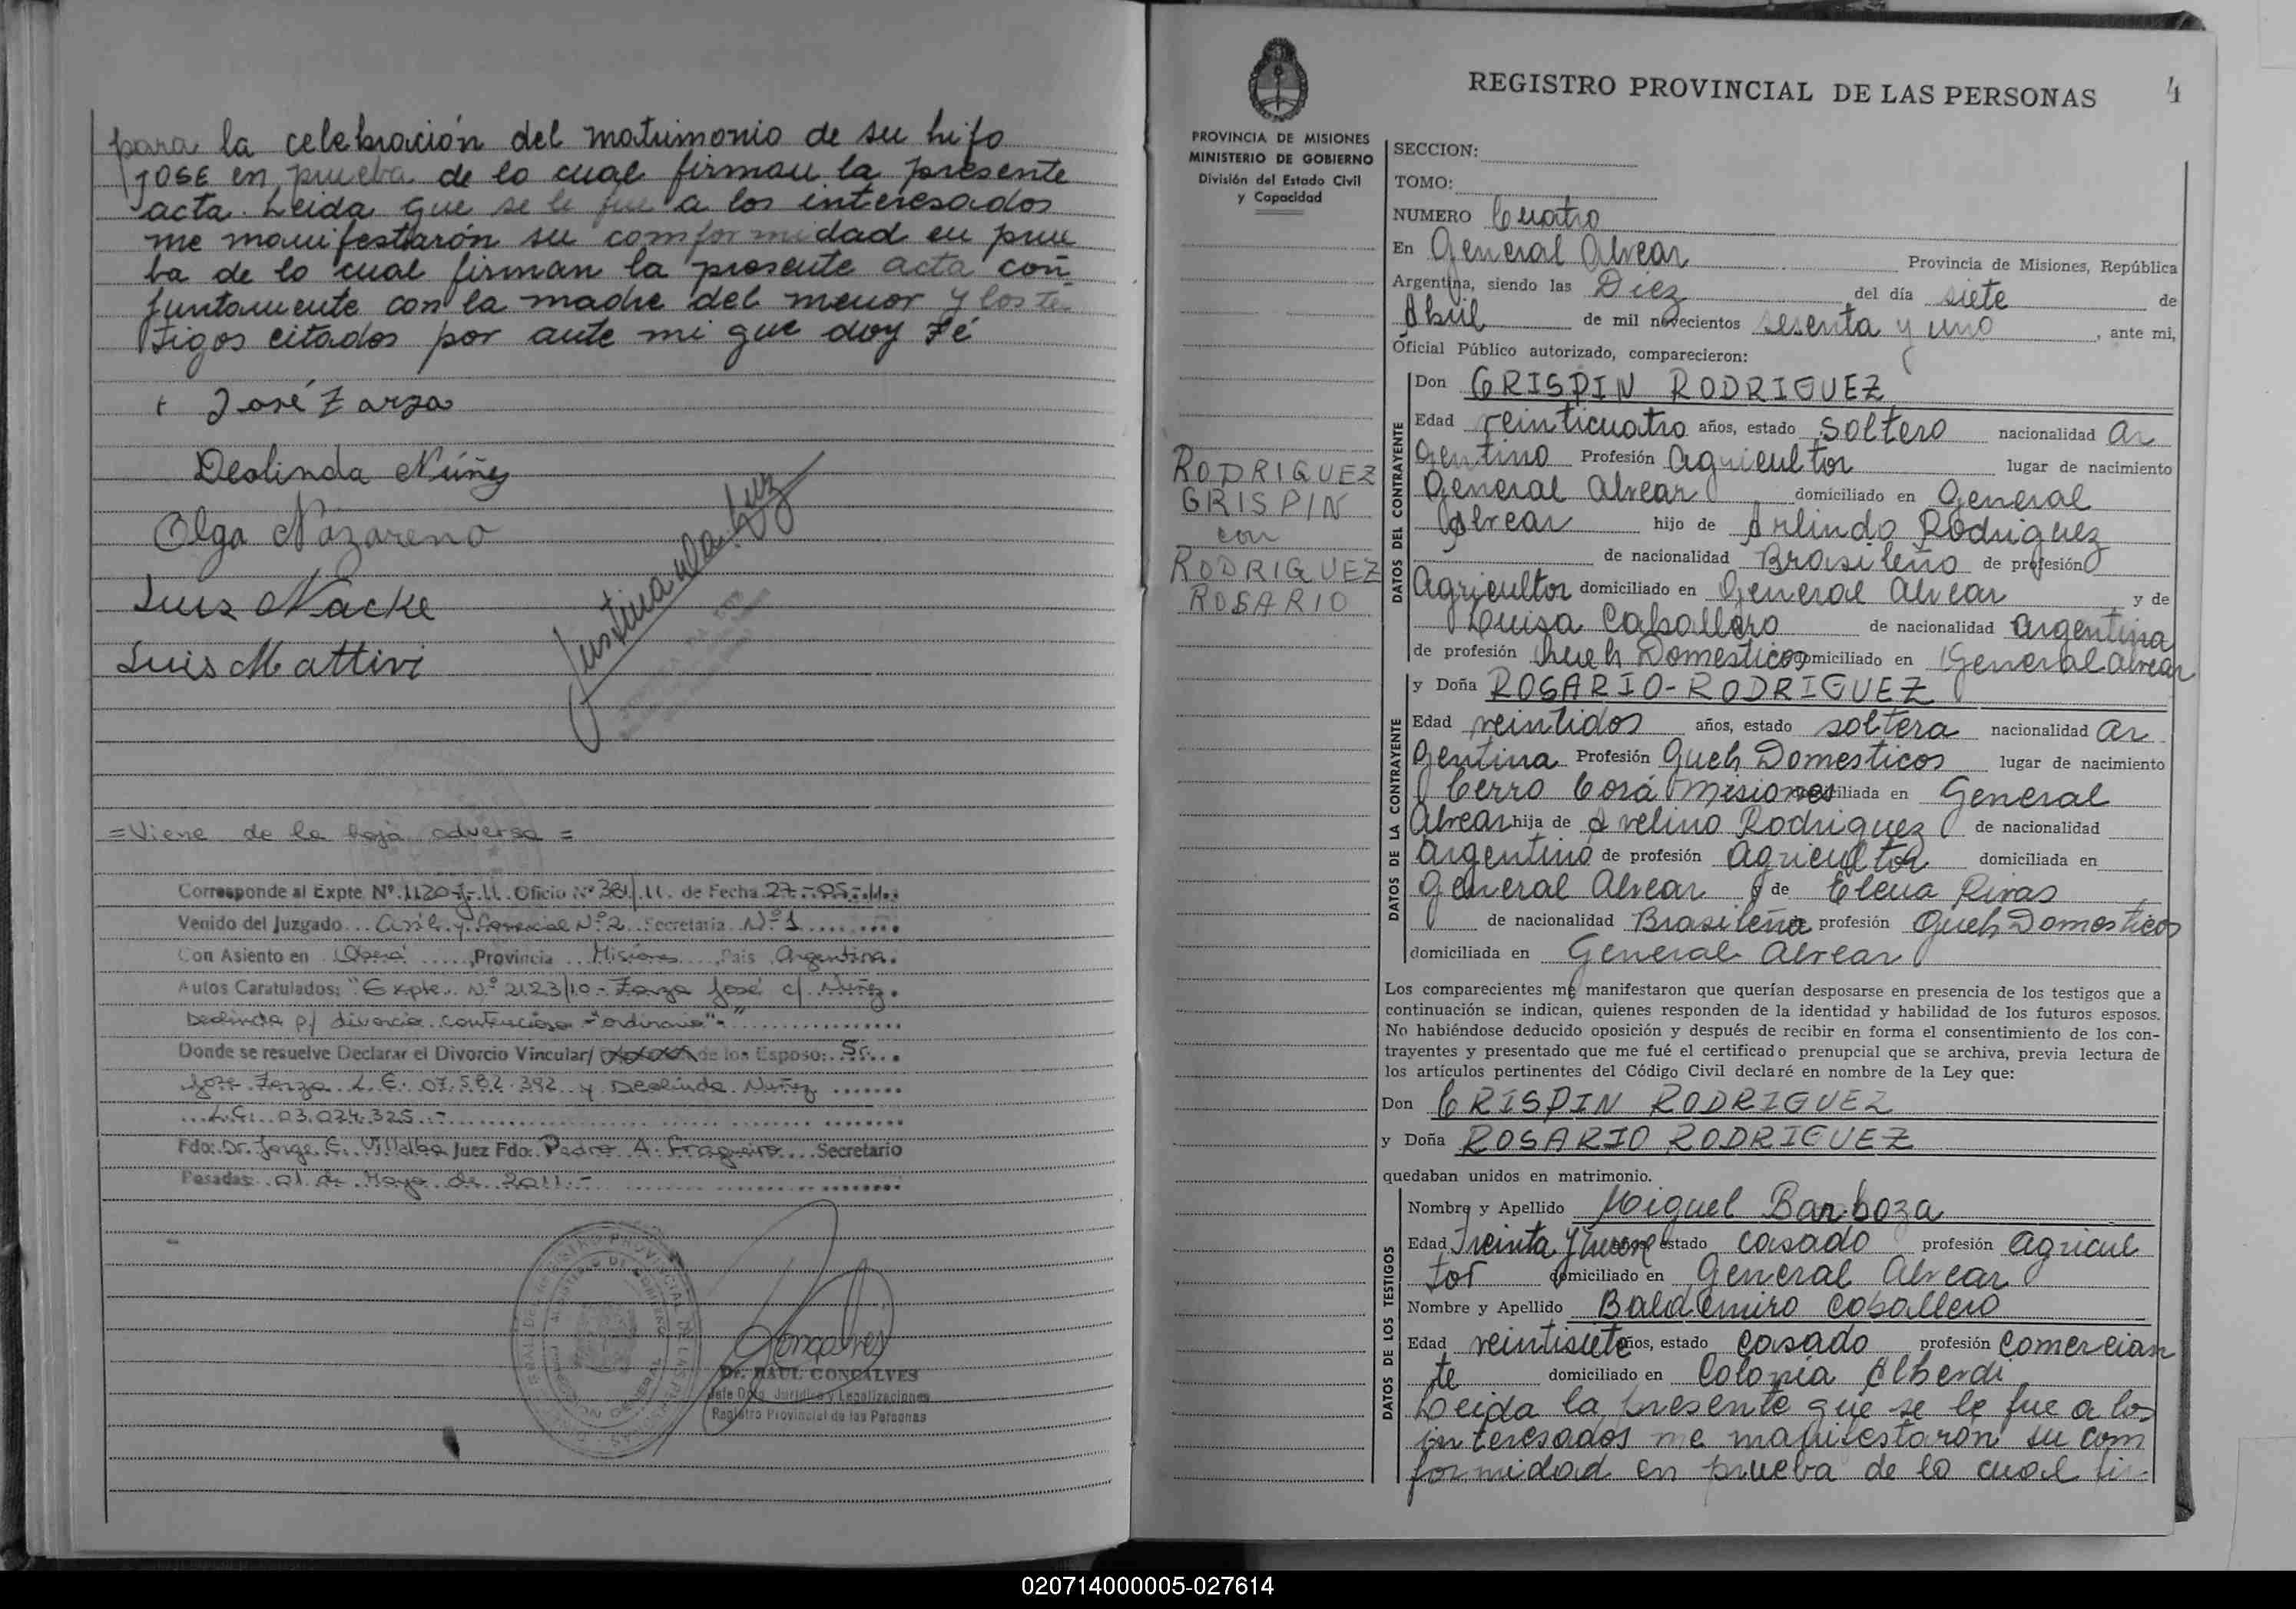 para la celebración del matrimonio de su hijo
JOSE en prueba de lo cual firman la presente
acta. Leida que se le fue a los interesados
me manifestarón su comformidad en prue
ba de lo cual firman la presente acta con
juntamente con la madre del menor y los te
tigos citados por ante mi que doy Fé
José Zarza
Deolinda Núñez
Olga Nazareno
Luis Nacke
Luis Mattivi
=Viene de la hoja adversa=
Corresponde al Expte. Nº 1120 11. Oficio Nº 381/11. de Fecha 27-05-11.
Venido del Juzgado Civil y Comercial Nº 2. Secretaria Nº 1
Con Asiento en Oberá, Provincia Misiones, Pais Argentina.
Autos Caratulados: "Expte. Nº 2123/10 - Zarza José c/ Núñez
Deolinda p/ divorcio contencioso - "ordinario"-
Donde se resuelve Declarar el Divorcio Vincular/ de los Esposo: Sr.
José Zarza L.E. 07.582.392 y Deolinda Nuñez
L.C. 03.024.325.-
Fdo: Dr. Jorge E. Villalba Juez Fdo: Pedro A. Fragueiro Secretario
Posadas: 01 de Mayo de 2011.-
Gonçalves
Dr. RAUL GONCALVES
Jefe Dpto. Jurídico y Legalizaciones
Registro Provincial de las Personas
REGISTRO PROVINCIAL DE LAS PERSONAS 4
PROVINCIA DE MISIONES
MINISTERIO DE GOBIERNO
División del Estado Civil
y Capacidad
RODRIGUEZ
GRISPIN
con
RODRIGUEZ
ROSARIO
SECCION:
TOMO:
NUMERO Cuatro
En General Alvear Provincia de Misiones, República
Argentina, siendo las Diez del día siete de
Abril de mil novecientos sesenta y uno, ante mi,
Oficial Público autorizado, comparecieron:
DATOS DEL CONTRAYENTE
Don CRISPIN RODRIGUEZ
Edad veinticuatro años, estado soltero nacionalidad Ar
gentino Profesión agricultor lugar de nacimiento
General Alvear domiciliado en General
Alvear hijo de Arlindo Rodriguez
de nacionalidad Brasileño de profesión
agricultor domiciliado en General Alvear y de
Luisa Caballero de nacionalidad argentina
de profesión Queh Domesticos domiciliado en General Alvear
DATOS DE LA CONTRAYENTE
y Doña ROSARIO-RODRIGUEZ
Edad veintidos años, estado soltera nacionalidad Ar
gentina Profesión Queh Domesticos lugar de nacimiento
Cerro Corá Misiones domiciliada en General
Alvear hija de Avelino Rodriguez de nacionalidad
argentino de profesión agricultor domiciliada en
General Alvear y de Elena Rivas
de nacionalidad Brasileña de profesión Queh Domesticos
domiciliada en General Alvear
Los comparecientes me manifestaron que querían desposarse en presencia de los testigos que a
continuación se indican, quienes responden de la identidad y habilidad de los futuros esposos.
No habiéndose deducido oposición y después de recibir en forma el consentimiento de los con-
trayentes y presentado que me fué el certificado prenupcial que se archiva, previa lectura de
los artículos pertinentes del Código Civil declaré en nombre de la Ley que:
Don CRISPIN RODRIGUEZ
y Doña ROSARIO RODRIGUEZ
quedaban unidos en matrimonio.
DATOS DE LOS TESTIGOS
Nombre y Apellido Miguel Barboza
Edad Treinta y nueve estado casado profesión agricul
tor domiciliado en General Alvear
Nombre y Apellido Baldemiro Caballero
Edad veintisiete años, estado casado profesión comercian
te domiciliado en Colonia Alberdi
Leida la presente que se le fue a los
interesados me manifestaron su com
formidad en prueba de lo cual fir-
020714000005-027614